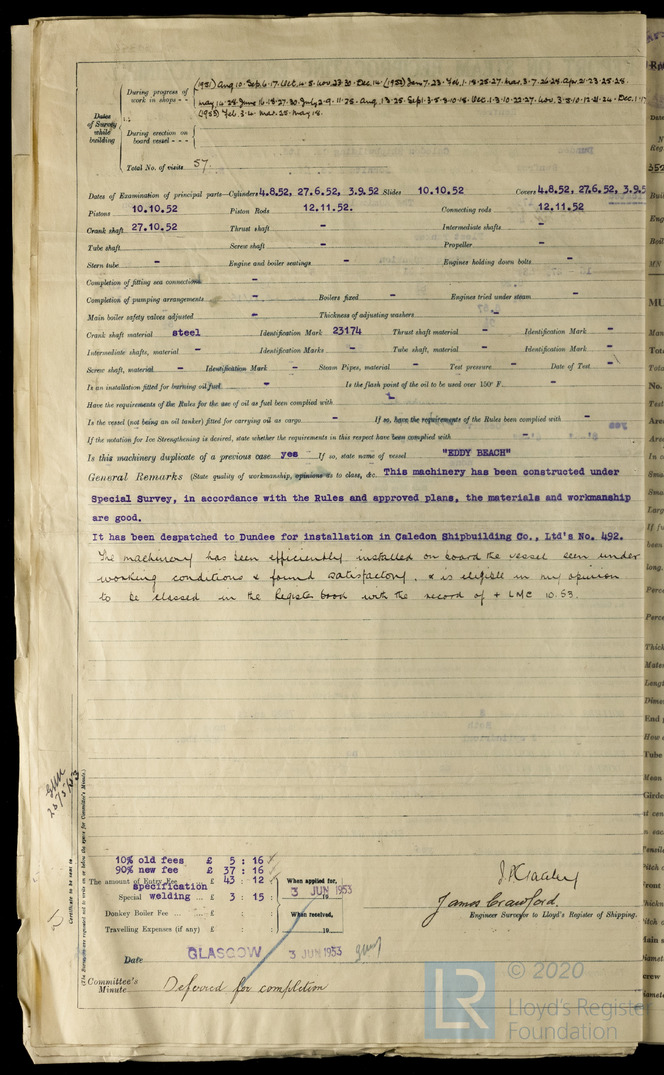 During progress of work in shops - - (1951) Aug. 10. Sep. 6. 17. Oct. 4. 5. Nov. 23. 30. Dec. 14. (1952) Jan. 7. 23. Feb. 1. 18. 25. 27. Mar. 3. 7. 26. 28. Apr. 21. 23. 25. 28.
May. 14. 28. June 16. 18. 27. 30. July 2. 9. 11. 25. Aug. 13. 25. Sept. 3. 5. 8. 10. 18. Oct. 1. 3. 10. 22. 27. Nov. 3. 5. 10. 12. 21. 24. Dec. 1. 17
(1953) Feb. 3. 4. Mar. 25. May. 18.
Dates of Survey while building
During erection on board vessel - - -
Total No. of visits 57
Dates of Examination of principal parts—Cylinders 4.8.52, 27.6.52, 3.9.52 Slides 10.10.52 Covers 4.8.52, 27.6.52, 3.9.5
Pistons 10.10.52 Piston Rods 12.11.52. Connecting rods 12.11.52
Crank shaft 27.10.52 Thrust shaft - Intermediate shafts -
Tube shaft Screw shaft - Propeller -
Stern tube - Engine and boiler seatings - Engines holding down bolts -
Completion of fitting sea connections -
Completion of pumping arrangements - Boilers fixed - Engines tried under steam -
Main boiler safety valves adjusted - Thickness of adjusting washers -
Crank shaft material steel Identification Mark 23174 Thrust shaft material - Identification Mark -
Intermediate shafts, material - Identification Marks - Tube shaft, material - Identification Mark -
Screw shaft, material - Identification Mark - Steam Pipes, material - Test pressure - Date of Test -
Is an installation fitted for burning oil fuel - Is the flash point of the oil to be used over 150° F. -
Have the requirements of the Rules for the use of oil as fuel been complied with -
Is the vessel (not being an oil tanker) fitted for carrying oil as cargo - If so, have the requirements of the Rules been complied with -
If the notation for Ice Strengthening is desired, state whether the requirements in this respect have been complied with -
Is this machinery duplicate of a previous case yes If so, state name of vessel "EDDY BEACH"
General Remarks (State quality of workmanship, opinions as to class, &c. This machinery has been constructed under
Special Survey, in accordance with the Rules and approved plans, the materials and workmanship
are good.
It has been despatched to Dundee for installation in Caledon Shipbuilding Co., Ltd's No. 492.
The machinery has been efficiently installed on board the vessel seen under
working conditions & found satisfactory, & is eligible in my opinion
to be classed in the Register book with the record of + LMC 10.53.
Certificate to be sent to
(The Surveyors are requested not to write on or below the space for Committee's Minute.)
10% old fees £ 5 : 16
90% new fee £ 37 : 16
The amount of Entry Fee £ 43 : 12
specification
Special welding ... £ 3 : 15 :
Donkey Boiler Fee ... £ : :
Travelling Expenses (if any) £ : :
When applied for,
3 JUN 1953
19
When received,
19
James Crawford.
Engineer Surveyor to Lloyd's Register of Shipping.
Date GLASGOW 3 JUN 1953
Committee's Minute Deferred for completion
LR
© 2020
Lloyd's Register
Foundation